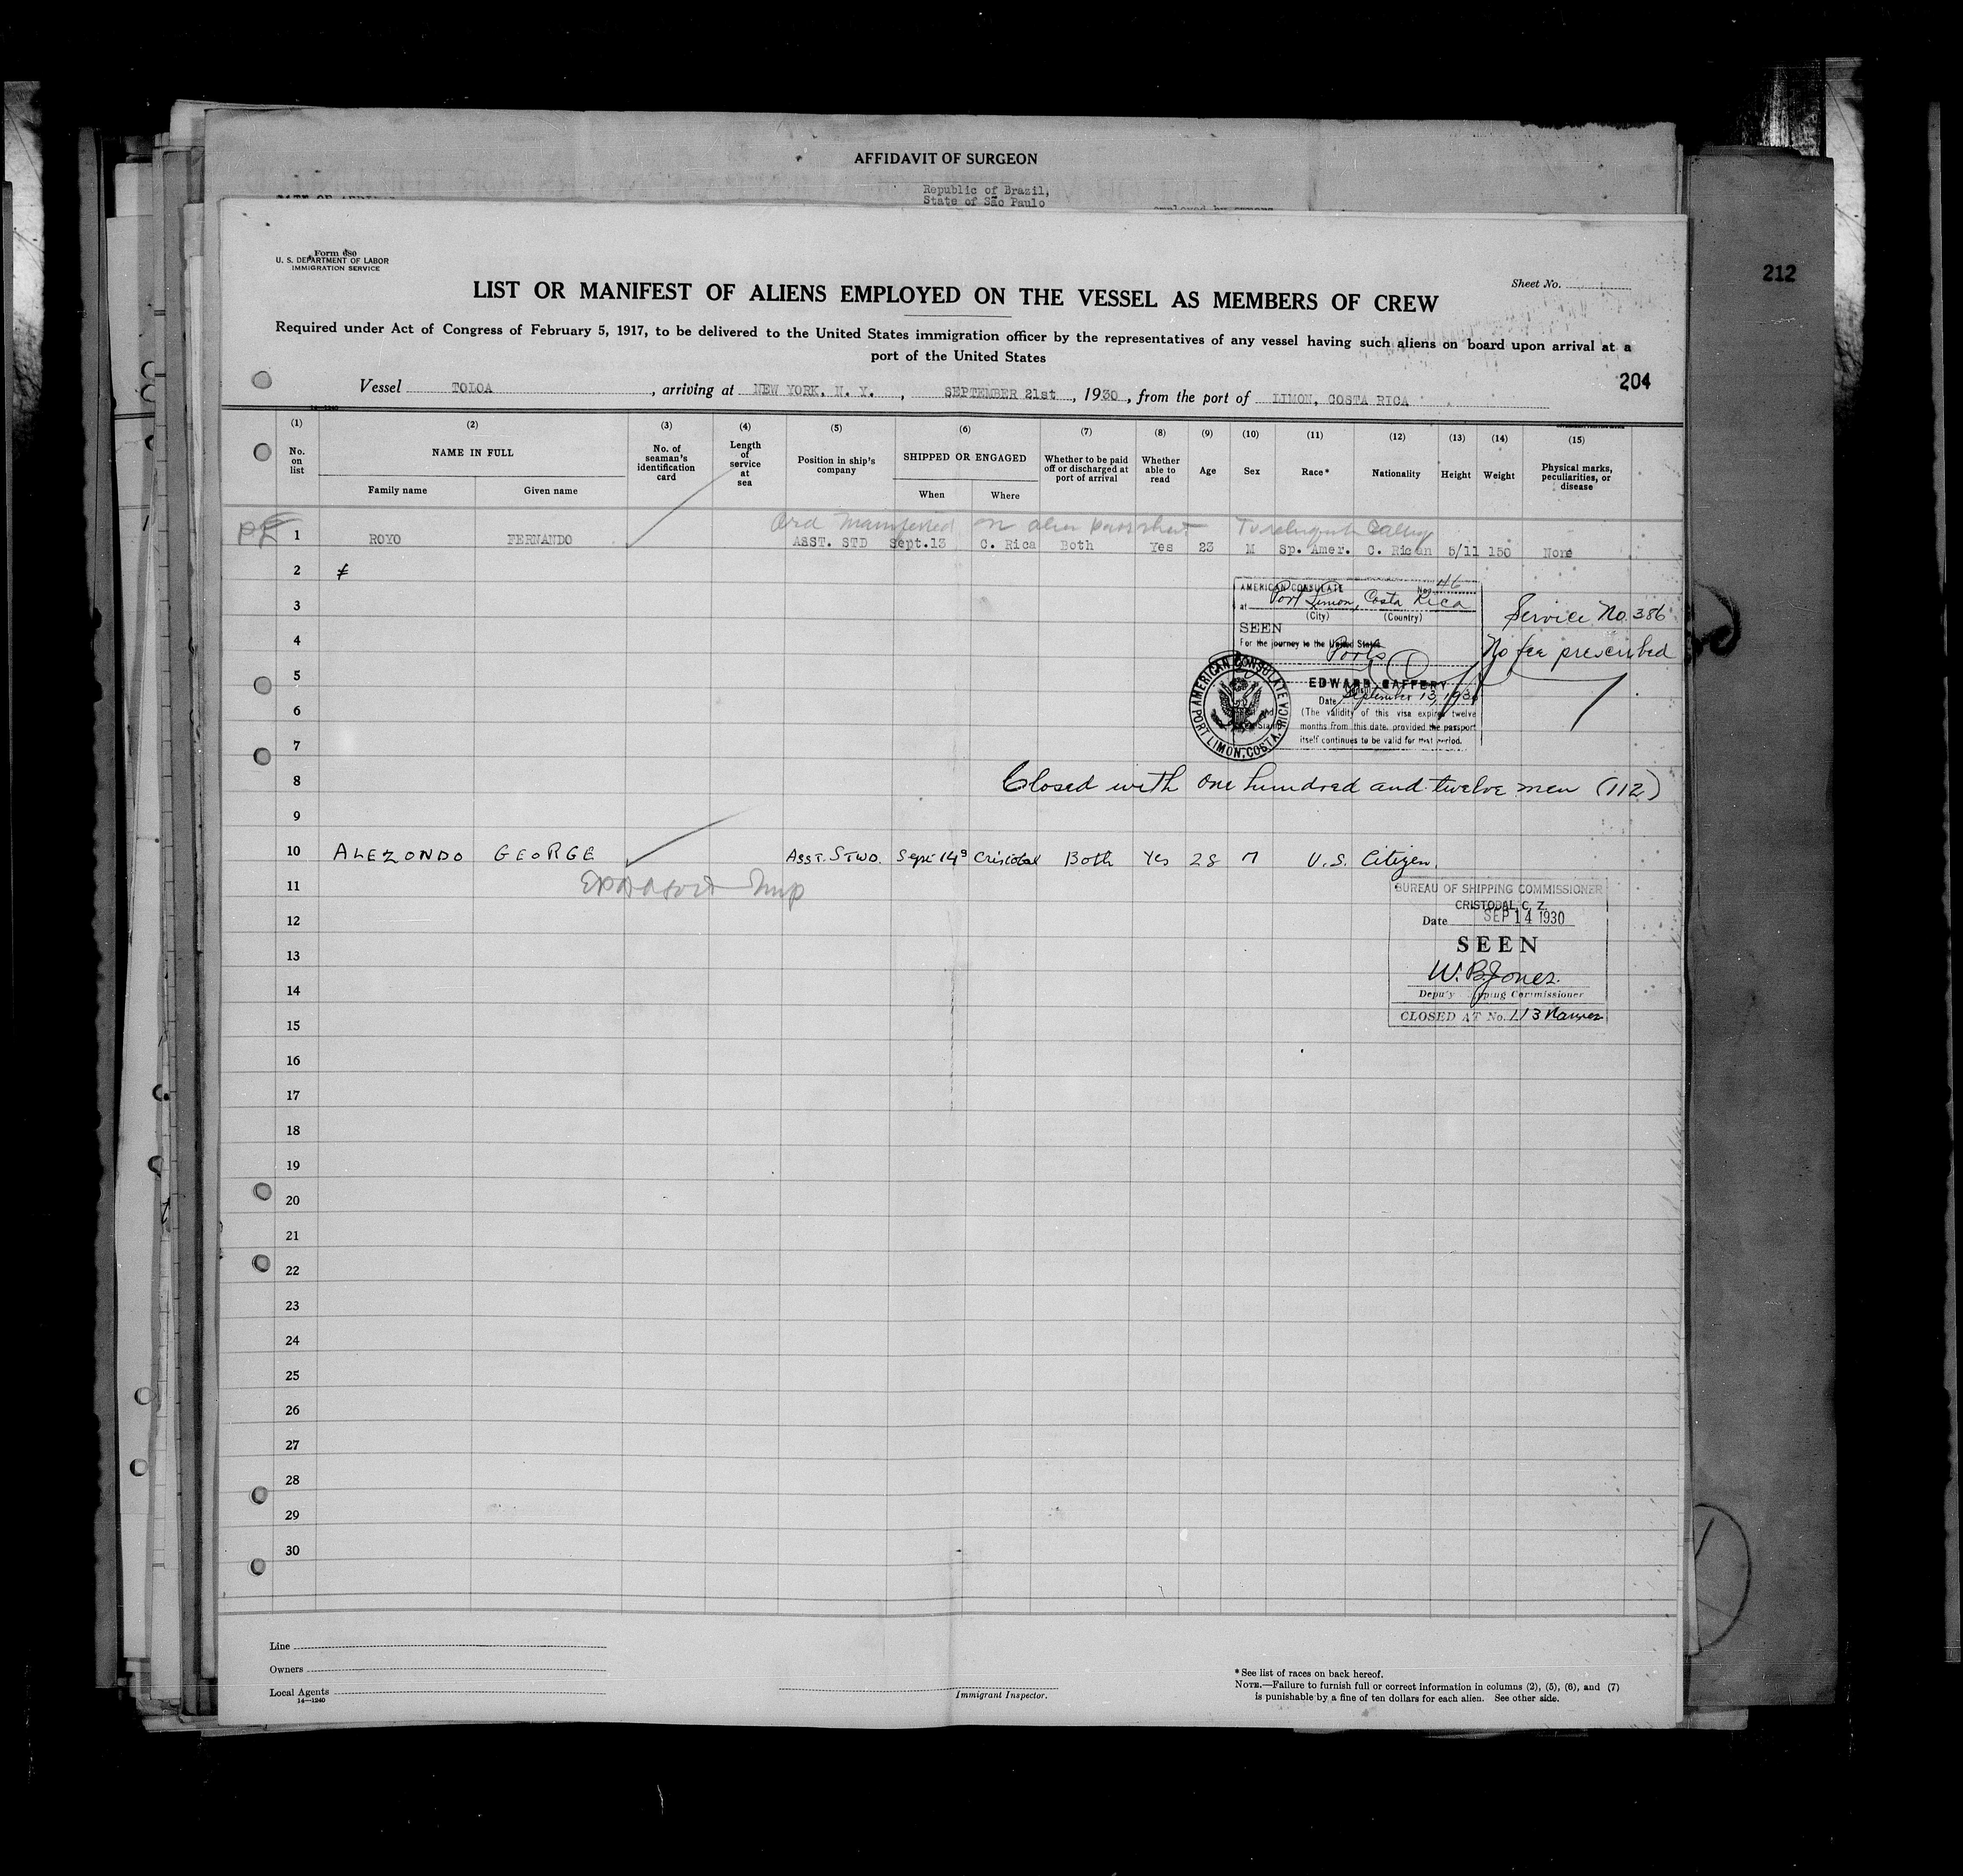 AFFIDAVIT OF SURGEON
Republic of Brazil,
State of São Paulo
212
Form 680
U. S. DEPARTMENT OF LABOR
IMMIGRATION SERVICE
Sheet No.
LIST OR MANIFEST OF ALIENS EMPLOYED ON THE VESSEL AS MEMBERS OF CREW
Required under Act of Congress of February 5, 1917, to be delivered to the United States immigration officer by the representatives of any vessel having such aliens on board upon arrival at a
port of the United States
204
Vessel TOLOA, arriving at NEW YORK, N. Y., SEPTEMBER 21st, 1930, from the port of LIMON, COSTA RICA
14—1240
(1) (2) (3) (4) (5) (6) (7) (8) (9) (10) (11) (12) (13) (14) (15)
No. on list NAME IN FULL Family name Given name No. of seaman's identification card Length of service at sea Position in ship's company SHIPPED OR ENGAGED When Where Whether to be paid off or discharged at port of arrival Whether able to read Age Sex Race* Nationality Height Weight Physical marks, peculiarities, or disease
on alien
1 ROYO FERNANDO ASST. STD Sept.13 C. Rica Both Yes 23 M Sp. Amer. C. Rican 5/11 150 None
2
AMERICAN CONSULATE No. 46
3
at Port Limon, Costa Rica
(City) (Country)
Service No. 386
SEEN
4
For the journey to the United States
Ports
No fee prescribed
5
EDWARD CAFFERY
Date September 13, 1930
6
(The validity of this visa expires twelve
months from this date, provided the passport
itself continues to be valid for that period.
AMERICAN CONSULATE PORT LIMON, COSTA RICA
7
8 Closed with one hundred and twelve men (112)
9
10 ALEZONDO GEORGE ASST. STWD. Sept 14 Cristobal Both Yes 28 M U.S. Citizen.
11
BUREAU OF SHIPPING COMMISSIONER
CRISTOBAL, C. Z.
12
Date SEP 14 1930
13
SEEN
W. B. Jones.
14
Deputy Shipping Commissioner
15
CLOSED AT No. 113 Names
16
17
18
19
20
21
22
23
24
25
26
27
28
29
30
Line
Owners
Local Agents
14—1240
Immigrant Inspector.
* See list of races on back hereof.
NOTE.—Failure to furnish full or correct information in columns (2), (5), (6), and (7)
is punishable by a fine of ten dollars for each alien. See other side.